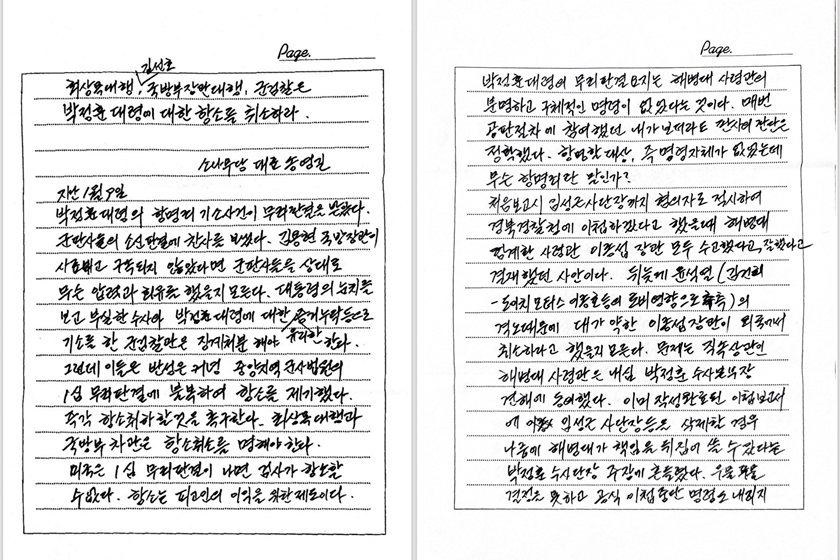 Page.
김선호
최상목대행, 국방부장관대행, 군검찰은
박정훈 대령에 대한 항소를 취소하라.
소나무당 대표 송영길
지난 1월 9일
박정훈 대령의 항명죄 기소사건이 무죄판결을 받았다.
군판사들의 소신판결에 찬사를 보냈다. 김용현 국방장관이
사표내고 구속되지 않았다면 군판사들을 상대로
무슨 압력과 회유를 했을지 모른다. 대통령의 눈치를
보고 부실한 수사와 박정훈 대령에 대한 증거누락등으로
유리한
기소를 한 군검찰관은 징계처분 해야 한다.
그런데 이들은 반성은 커녕 중앙지역 군사법원의
1심 무죄판결에 불복하여 항소를 제기했다.
즉각 항소취하할것을 촉구한다. 최상목대행과
국방부 차관은 항소취소를 명해야 한다.
미국은 1심 무죄판결이 나면 검사가 항소할
수 없다. 항소는 피고인의 이익을 위한 제도이다.
Page.
박정훈대령의 무죄판결 요지는 해병대 사령관의
분명하고 구체적인 명령이 없었다는 것이다. 매번
공판절차에 참여했던 내가 보더라도 판사의 판단은
정확했다. 항명할 대상, 즉 명령자체가 없었는데
무슨 항명죄란 말인가?
처음보고시 임성근사단장까지 혐의자로 적시하여
경북경찰청에 이첩하겠다고 했을때 해병대
김계환 사령관 이종섭 장관 모두 수고했다고, 잘했다고
결재했던 사안이다. 뒤늦게 윤석열 (김건희
-도이치모터스 이종호등의 로비영향으로 추측)의
격노때문에 대가 약한 이종섭장관이 외국가서
취소하라고 했을지 모른다. 문제는 직속상관인
해병대 사령관은 내심 박정훈 수사본부장
견해에 동의했다. 이미 작성완료된 이첩보고서
에 임성근 사단장등을 삭제할 경우
나중에 해병대가 책임을 뒤집어 쓸 수 있다는
박정훈 수사단장 주장에 흔들렸다. 우물쭈물
결정을 못하고 공식 이첩중단 명령도 내리지